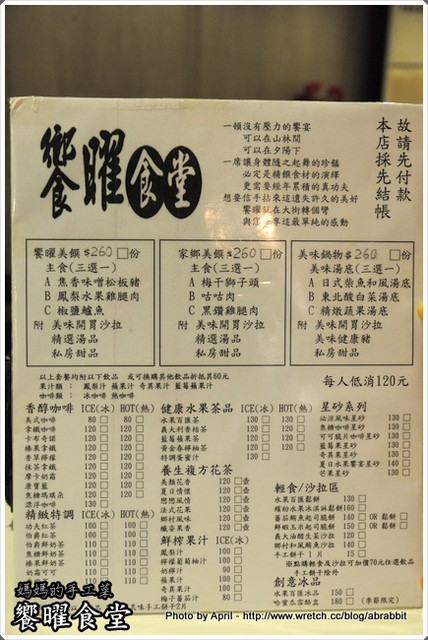 饗曜食堂
一頓沒有壓力的饗宴
可以在山林間
可以在夕陽下
一席讓身體隨之起舞的珍饈
必定是精饌食材的演繹
更需要經年累積的真功夫
想要信手拈來這遺失許久的美好
饗曜就在大街轉個彎
與您分享這最單純的感動
本店採先結帳
故請先付款
饗曜美饌$260 份
主食(三選一)
A 焦香味噌松板豬
B 鳳梨水果雞腿肉
C 椒鹽鱸魚
附 美味開胃沙拉
精選湯品
私房甜品
家鄉美饌$260 份
主食(三選一)
A 梅干獅子頭
B 咕咕肉
C 黑鑽雞腿肉
附 美味開胃沙拉
精選湯品
私房甜品
美味鍋物$260 份
美味湯底(三選一)
A 日式柴魚和風湯底
B 東北酸白菜湯底
C 精燉蔬果湯底
附 美味開胃沙拉
美味健康豬
私房甜品
以上套餐均附以下飲品 或可換購其他飲品折抵其60元
果汁類: 鳳梨汁 蘋果汁 奇異果汁 藍莓蘋果汁
咖啡類: 冰咖啡 熱咖啡
每人低消120元
香醇咖啡 ICE(冰) HOT(熱)
美式咖啡 80 80
拿鐵咖啡 120 120
卡布奇諾 120 120
榛果拿鐵 120 120
香草榛檸 120 120
抹茶拿鐵 120 120
摩卡奶霜 120 120
康寶藍 120 120
焦糖瑪琪朵 120 120
漂浮咖啡 130
精緻特調 ICE(冰) HOT(熱)
幼夫紅茶 100 100
伯爵紅茶 100 100
伯爵鮮奶茶 110 110
焦糖鮮奶茶 110 110
榛果鮮奶茶 110 110
健康水果茶品 ICE(冰) HOT(熱)
水果百匯茶 130 130
義大利香桔茶 120 120
藍莓蘋果茶 120 120
黃金春檸柚茶 120 120
特調蜜蜜汁 130
養生複方花茶
美顏花香 120 壺
夏日情懷 120 壺
戀戀風情 120 壺
法式花果 120 壺
鄉村風味 120 壺
纖姿美人 120 壺
鮮榨果汁 ICE(冰)
鳳梨汁 100
檸檬葡萄柚汁 100
奶檸汁 90
蘋果汁 90
奇異果汁 90
梅子蕃茄汁 80
星砂系列
沁涼風味星砂 130
焦糖咖啡星砂 130
可可脆片咖啡星砂 130
藍莓蘋果星砂 130
奇異果星砂 130
夏日水果饗宴星砂 140
芒果星砂 130
輕食/沙拉區
水果百匯鬆餅 130
繽紛水果冰淇淋鬆餅 160
蕃茄鮪魚起司脆餅 140 OR 鬆餅
鮮蝦玉米起司脆餅 140 OR 鬆餅
義大油醋生菜沙拉 120
鄉村和風鮪魚沙拉 120
手工餅干1片 15
※點購輕食及沙拉可加價70元任選飲品
手工餅干除外
創意冰品
水果百匯冰品 150
哈蜜瓜雪酪盅 180 (季節限定)
媽媽的手工菜
饗曜食堂
Photo by April - http://www.wretch.cc/blog/abrabbit